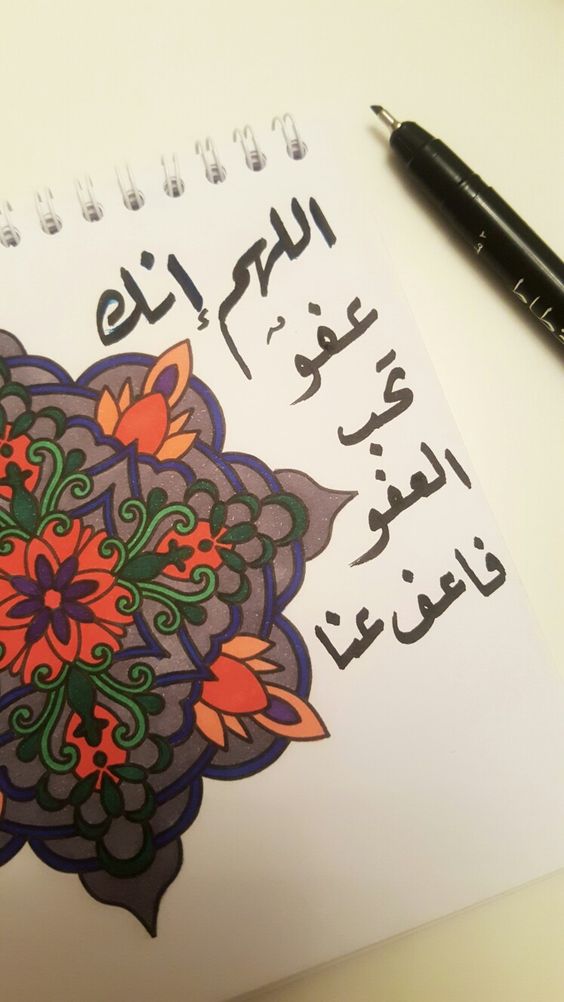 اللهم إنك
عفوٌ
تحب
العفو
فاعف عنا
خطاط